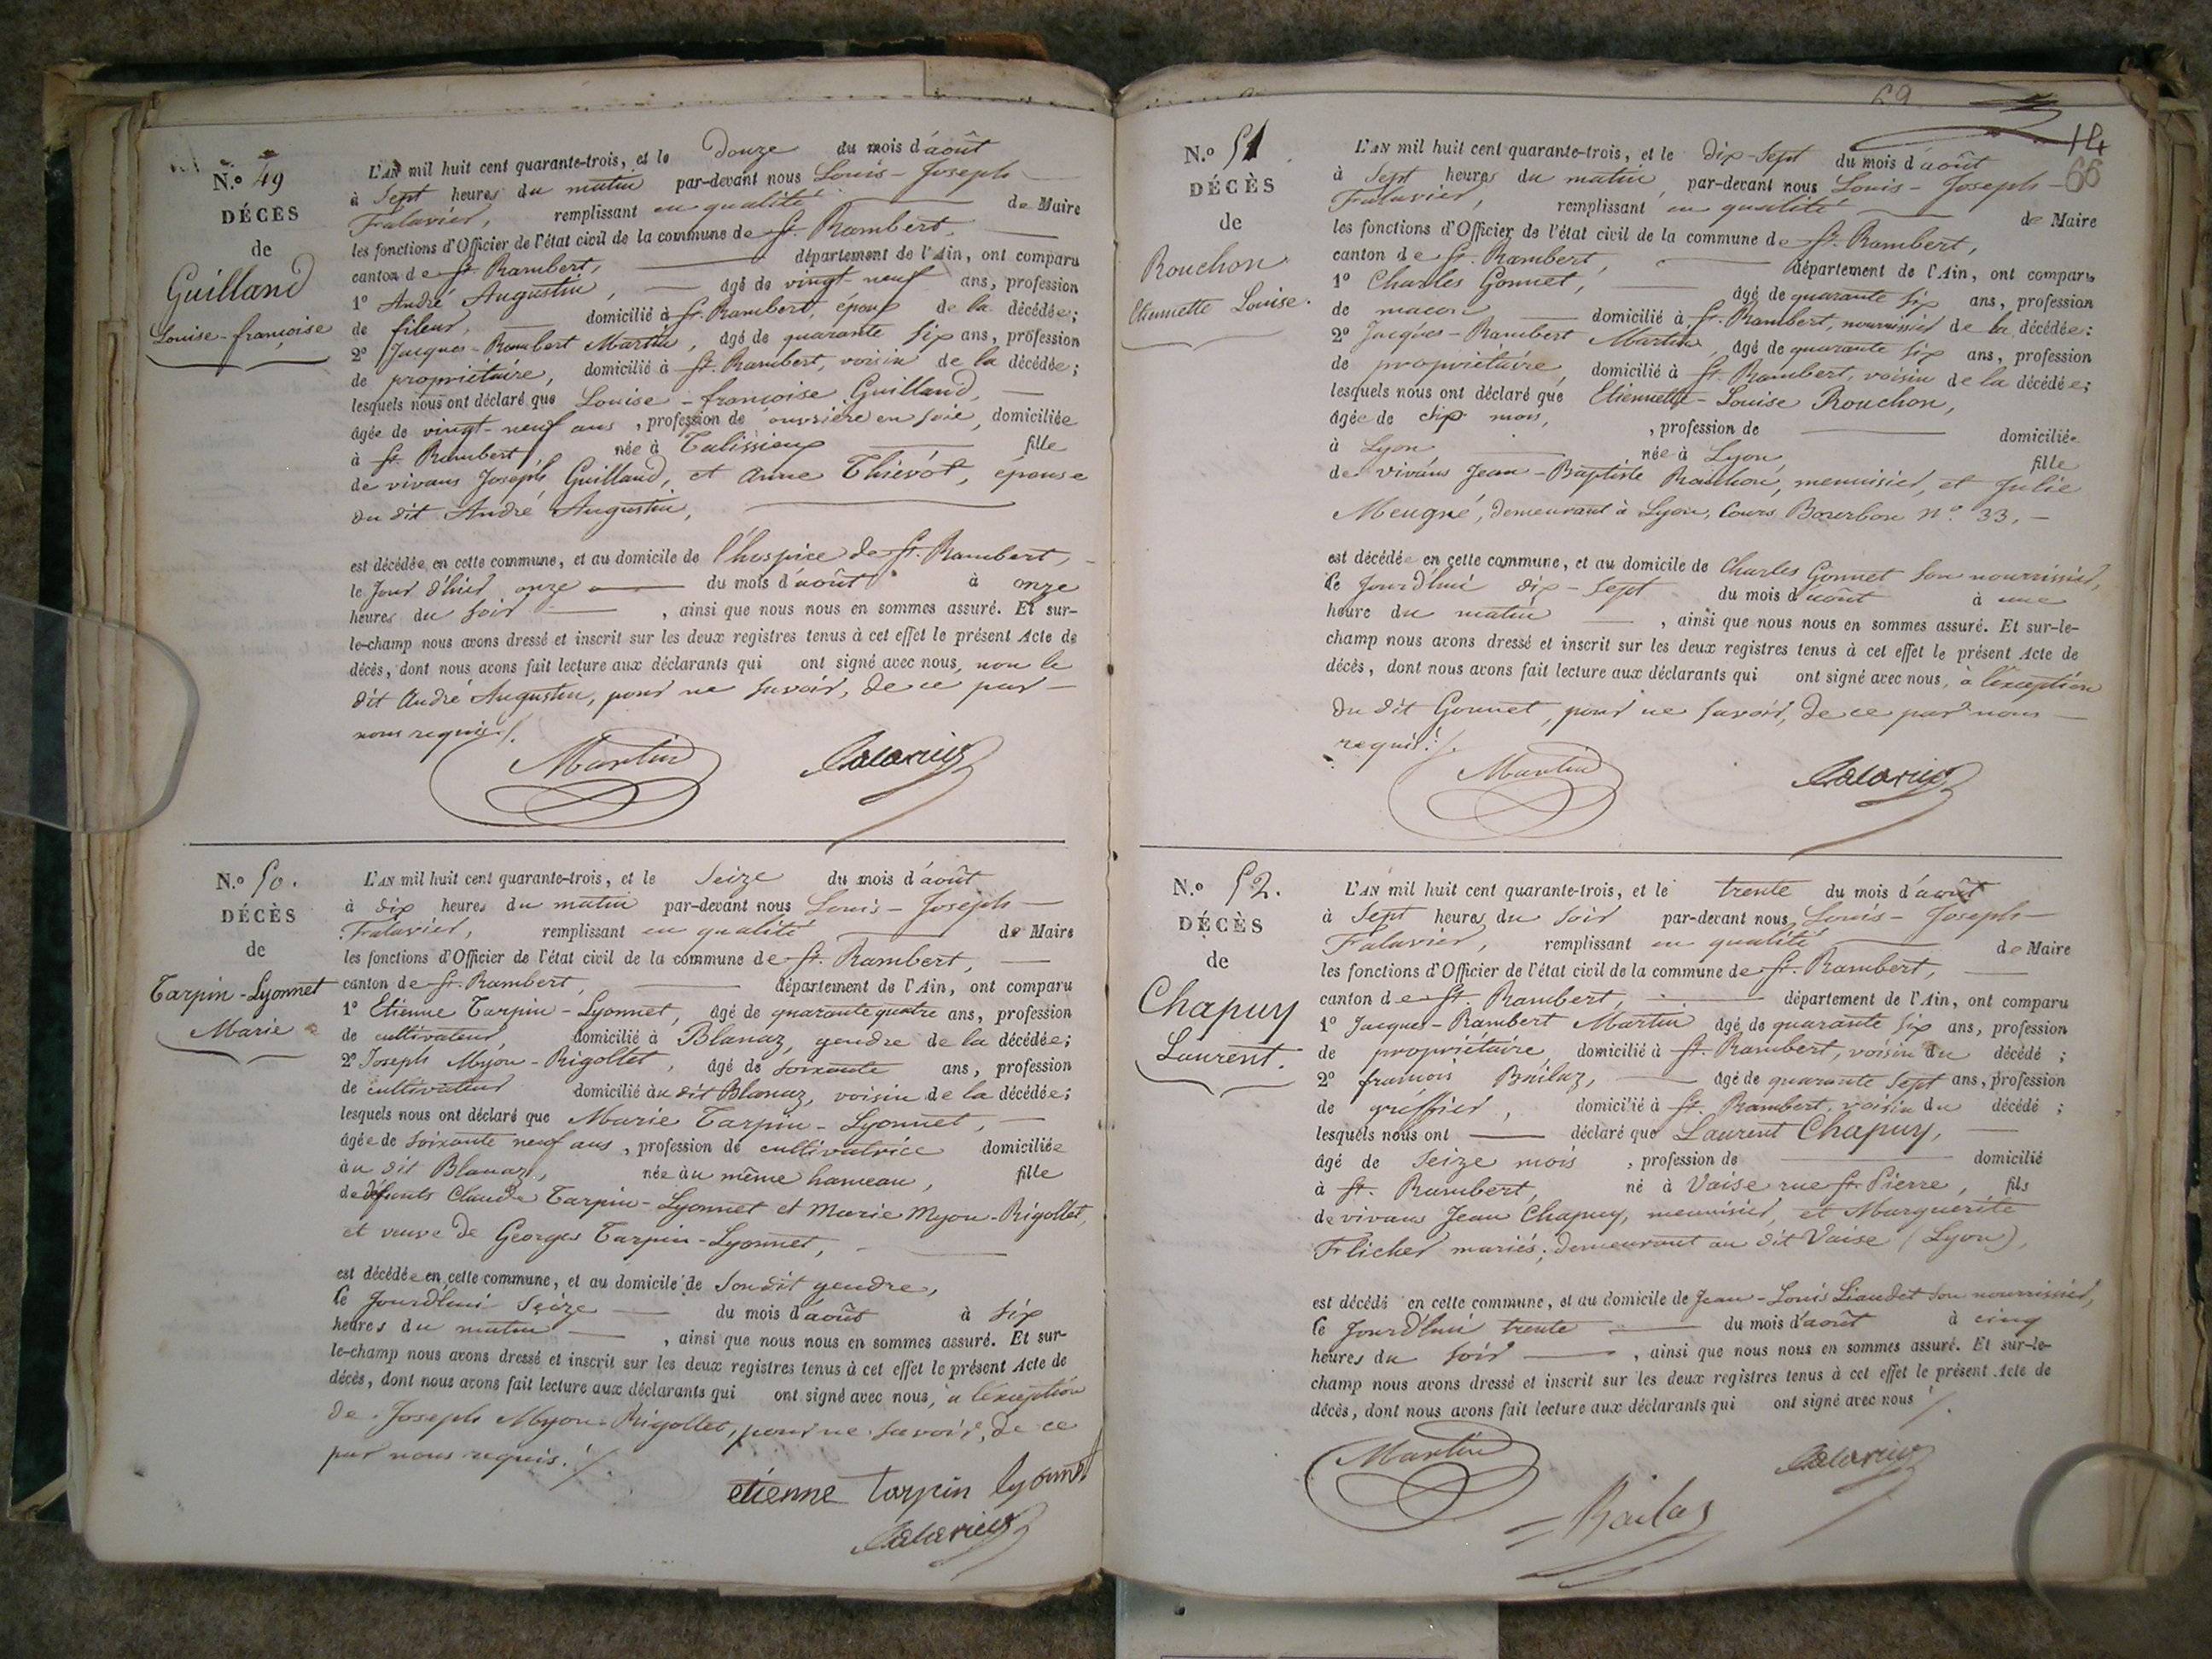 N.º 49
DÉCÈS
de
Guilland
Louise-françoise
L'AN mil huit cent quarante-trois, et le douze du mois d'août
à Sept heures du matin par-devant nous Louis-Joseph
Falavier, remplissant en qualité de Maire
les fonctions d'Officier de l'état civil de la commune de St. Rambert,
canton de St. Rambert, département de l'Ain, ont comparu
1º André Augustin, âgé de vingt-neuf ans, profession
de fileur, domicilié à St. Rambert, époux de la décédée;
2º Jacques-Rambert Martin, âgé de quarante six ans, profession
de propriétaire, domicilié à St. Rambert, voisin de la décédée;
lesquels nous ont déclaré que Louise-françoise Guilland,
âgée de vingt-neuf ans, profession de ouvrière en soie, domiciliée
à St. Rambert, née à Talissieux fille
de vivans Joseph Guilland, et Anne Thiévot, épouse
du dit André Augustin,
est décédée en cette commune, et au domicile de l'hospice de St. Rambert,
le Jour d'hier onze du mois d'août à onze
heures du soir, ainsi que nous nous en sommes assuré. Et sur-
le-champ nous avons dressé et inscrit sur les deux registres tenus à cet effet le présent Acte de
décès, dont nous avons fait lecture aux déclarants qui ont signé avec nous, non le
dit André Augustin, pour ne savoir, de ce par
nous requis./.
Martin
Falavier
N.º 50.
DÉCÈS
de
Tarpin-Lyonnet
Marie
L'AN mil huit cent quarante-trois, et le Seize du mois d'août
à dix heures du matin par-devant nous Louis-Joseph
Falavier, remplissant en qualité de Maire
les fonctions d'Officier de l'état civil de la commune de St. Rambert,
canton de St. Rambert, département de l'Ain, ont comparu
1º Etienne Tarpin-Lyonnet, âgé de quarante quatre ans, profession
de cultivateur domicilié à Blanaz, gendre de la décédée;
2º Joseph Myon-Rigollet, âgé de soixante ans, profession
de cultivateur domicilié au dit Blanaz, voisin de la décédée;
lesquels nous ont déclaré que Marie Tarpin-Lyonnet,
âgée de soixante neuf ans, profession de cultivatrice domiciliée
au dit Blanaz, née au même hameau, fille
de défunts Claude Tarpin-Lyonnet et Marie Myon-Rigollet,
et veuve de Georges Tarpin-Lyonnet,
est décédée en cette commune, et au domicile de son dit gendre,
le Jourd'hui Seize du mois d'août à six
heures du matin, ainsi que nous nous en sommes assuré. Et sur-
le-champ nous avons dressé et inscrit sur les deux registres tenus à cet effet le présent Acte de
décès, dont nous avons fait lecture aux déclarants qui ont signé avec nous, à l'exception
de Joseph Myon-Rigollet, pour ne savoir, de ce
par nous requis./.
etienne tarpin lyonnet
Falavier
69
14
66
N.º 51
DÉCÈS
de
Rouchon
Etiennette Louise.
L'AN mil huit cent quarante-trois, et le dix-Sept du mois d'août
à Sept heures du matin, par-devant nous Louis-Joseph
Falavier, remplissant en qualité de Maire
les fonctions d'Officier de l'état civil de la commune de St. Rambert,
canton de St. Rambert, département de l'Ain, ont comparu
1º Charles Gonnet, âgé de quarante six ans, profession
de maçon domicilié à St. Rambert, nourrissier de la décédée:
2º Jacques-Rambert Martin, âgé de quarante six ans, profession
de propriétaire, domicilié à St. Rambert, voisin de la décédée;
lesquels nous ont déclaré que Etiennette-Louise Rouchon,
âgée de six mois, , profession de domiciliée
à Lyon née à Lyon, fille
de vivans Jean-Baptiste Rouchon, menuisier, et Julie
Meugné, demeurant à Lyon, Cours Bourbon Nº. 33,
est décédée en cette commune, et au domicile de Charles Gonnet son nourrissier,
le Jourd'hui dix-Sept du mois d'août à une
heure du matin, ainsi que nous nous en sommes assuré. Et sur-le-
champ nous avons dressé et inscrit sur les deux registres tenus à cet effet le présent Acte de
décès, dont nous avons fait lecture aux déclarants qui ont signé avec nous, à l'exception
du dit Gonnet, pour ne savoir, de ce par nous
requis./.
Martin
Falavier
N.º 52.
DÉCÈS
de
Chapuy
Laurent.
L'AN mil huit cent quarante-trois, et le trente du mois d'août
à Sept heures du soir par-devant nous Louis-Joseph
Falavier, remplissant en qualité de Maire
les fonctions d'Officier de l'état civil de la commune de St. Rambert,
canton de St. Rambert, département de l'Ain, ont comparu
1º Jacques-Rambert Martin âgé de quarante six ans, profession
de propriétaire, domicilié à St. Rambert, voisin du décédé;
2º françois Bailaz, âgé de quarante Sept ans, profession
de greffier, domicilié à St. Rambert, voisin du décédé;
lesquels nous ont déclaré que Laurent Chapuy,
âgé de Seize mois, profession de domicilié
à St. Rambert, né à Vaise rue St. Pierre, fils
de vivans Jean Chapuy, menuisier, et Marguerite
Flicher mariés, demeurant au dit Vaise (Lyon),
est décédé en cette commune, et au domicile de Jean-Louis Liaudet son nourrissier,
le Jourd'hui trente du mois d'août à cinq
heures du soir, ainsi que nous nous en sommes assuré. Et sur-le-
champ nous avons dressé et inscrit sur les deux registres tenus à cet effet le présent Acte de
décès, dont nous avons fait lecture aux déclarants qui ont signé avec nous./.
Martin
Falavier
Bailaz